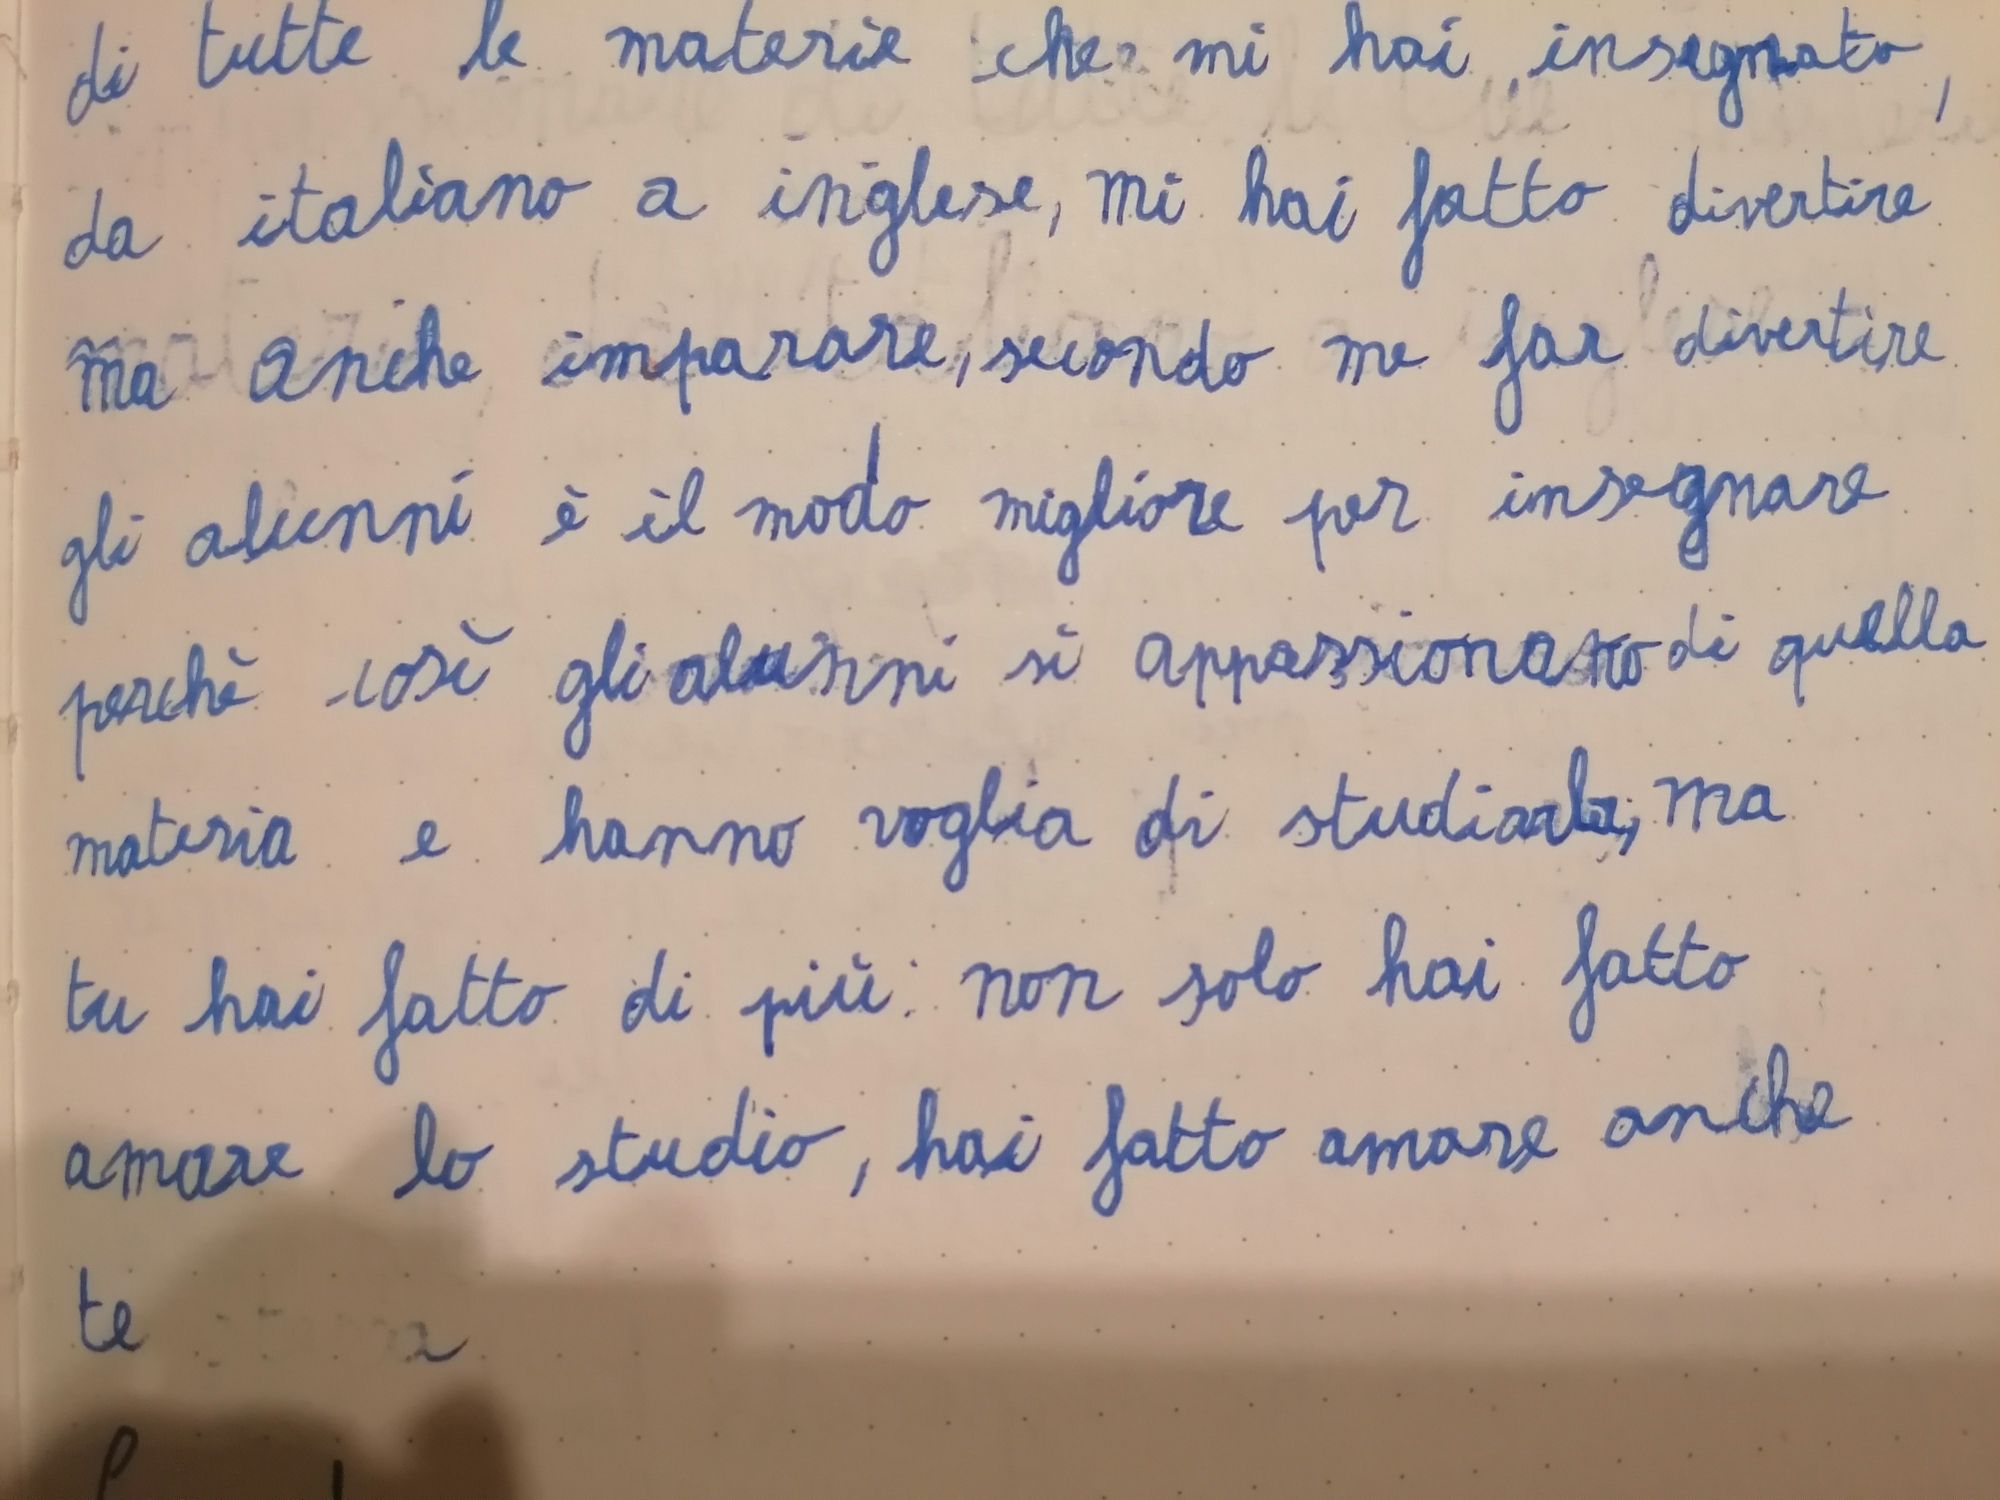 di tutte le materie che mi hai insegnato,
da italiano a inglese, mi hai fatto divertire
ma anche imparare, secondo me far divertire
gli alunni è il modo migliore per insegnare
perchè così gli alunni si appassionano di quella
materia e hanno voglia di studiarla, ma
tu hai fatto di più: non solo hai fatto
amare lo studio, hai fatto amare anche
te